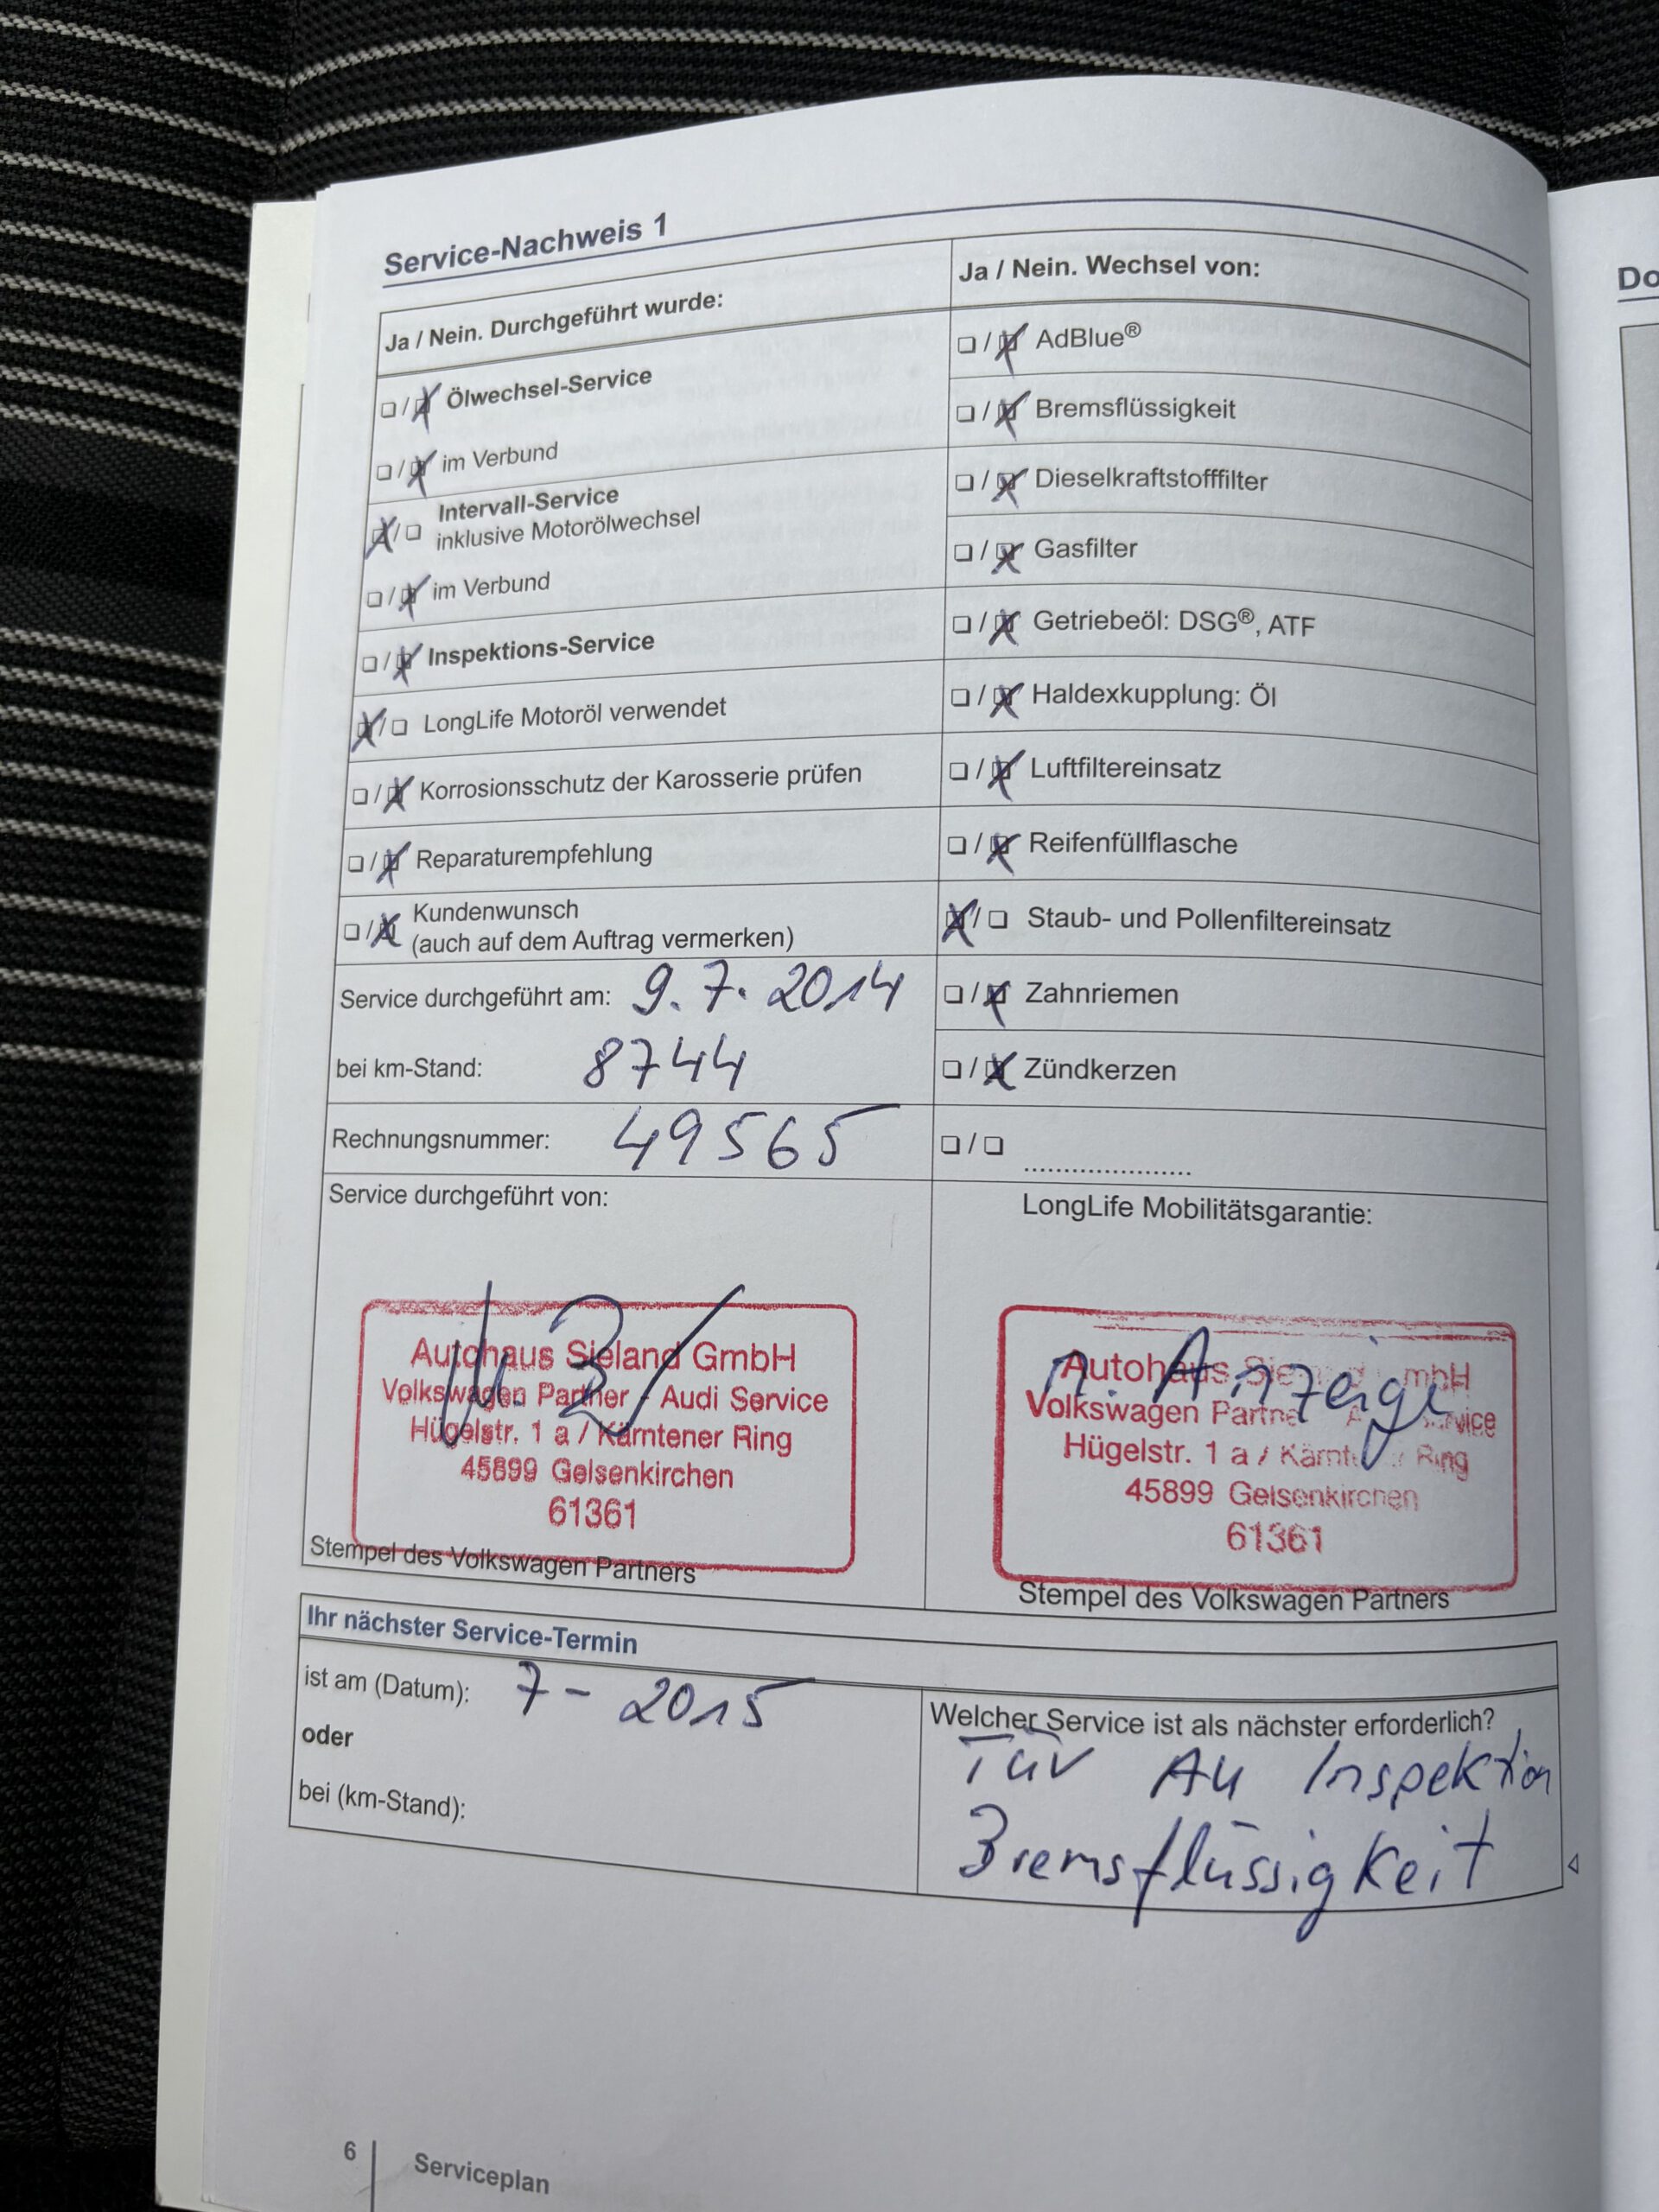 Service-Nachweis 1
Ja / Nein. Durchgeführt wurde:
❏ / ☒ Ölwechsel-Service
❏ / ☒ im Verbund
☒ / ❏ Intervall-Service
inklusive Motorölwechsel
❏ / ☒ im Verbund
❏ / ☒ Inspektions-Service
☒ / ❏ LongLife Motoröl verwendet
❏ / ☒ Korrosionsschutz der Karosserie prüfen
❏ / ☒ Reparaturempfehlung
❏ / ☒ Kundenwunsch
(auch auf dem Auftrag vermerken)
Service durchgeführt am: 9.7.2014
bei km-Stand: 8744
Rechnungsnummer: 49565
Ja / Nein. Wechsel von:
❏ / ☒ AdBlue®
❏ / ☒ Bremsflüssigkeit
❏ / ☒ Dieselkraftstofffilter
❏ / ☒ Gasfilter
❏ / ☒ Getriebeöl: DSG®, ATF
❏ / ☒ Haldexkupplung: Öl
❏ / ☒ Luftfiltereinsatz
❏ / ☒ Reifenfüllflasche
☒ / ❏ Staub- und Pollenfiltereinsatz
❏ / ☒ Zahnriemen
❏ / ☒ Zündkerzen
❏ / ❏ .....................
Service durchgeführt von:
Autohaus Sieland GmbH
Volkswagen Partner - Audi Service
Hügelstr. 1 a / Kärntener Ring
45899 Gelsenkirchen
61361
Stempel des Volkswagen Partners
LongLife Mobilitätsgarantie:
n. Anzeige
Autohaus Sieland GmbH
Volkswagen Partner Audi Service
Hügelstr. 1 a / Kärntener Ring
45899 Gelsenkirchen
61361
Stempel des Volkswagen Partners
Ihr nächster Service-Termin
ist am (Datum): 7 - 2015
oder
bei (km-Stand):
Welcher Service ist als nächster erforderlich?
TÜV AU Inspektion
Bremsflüssigkeit
6
Serviceplan
Do